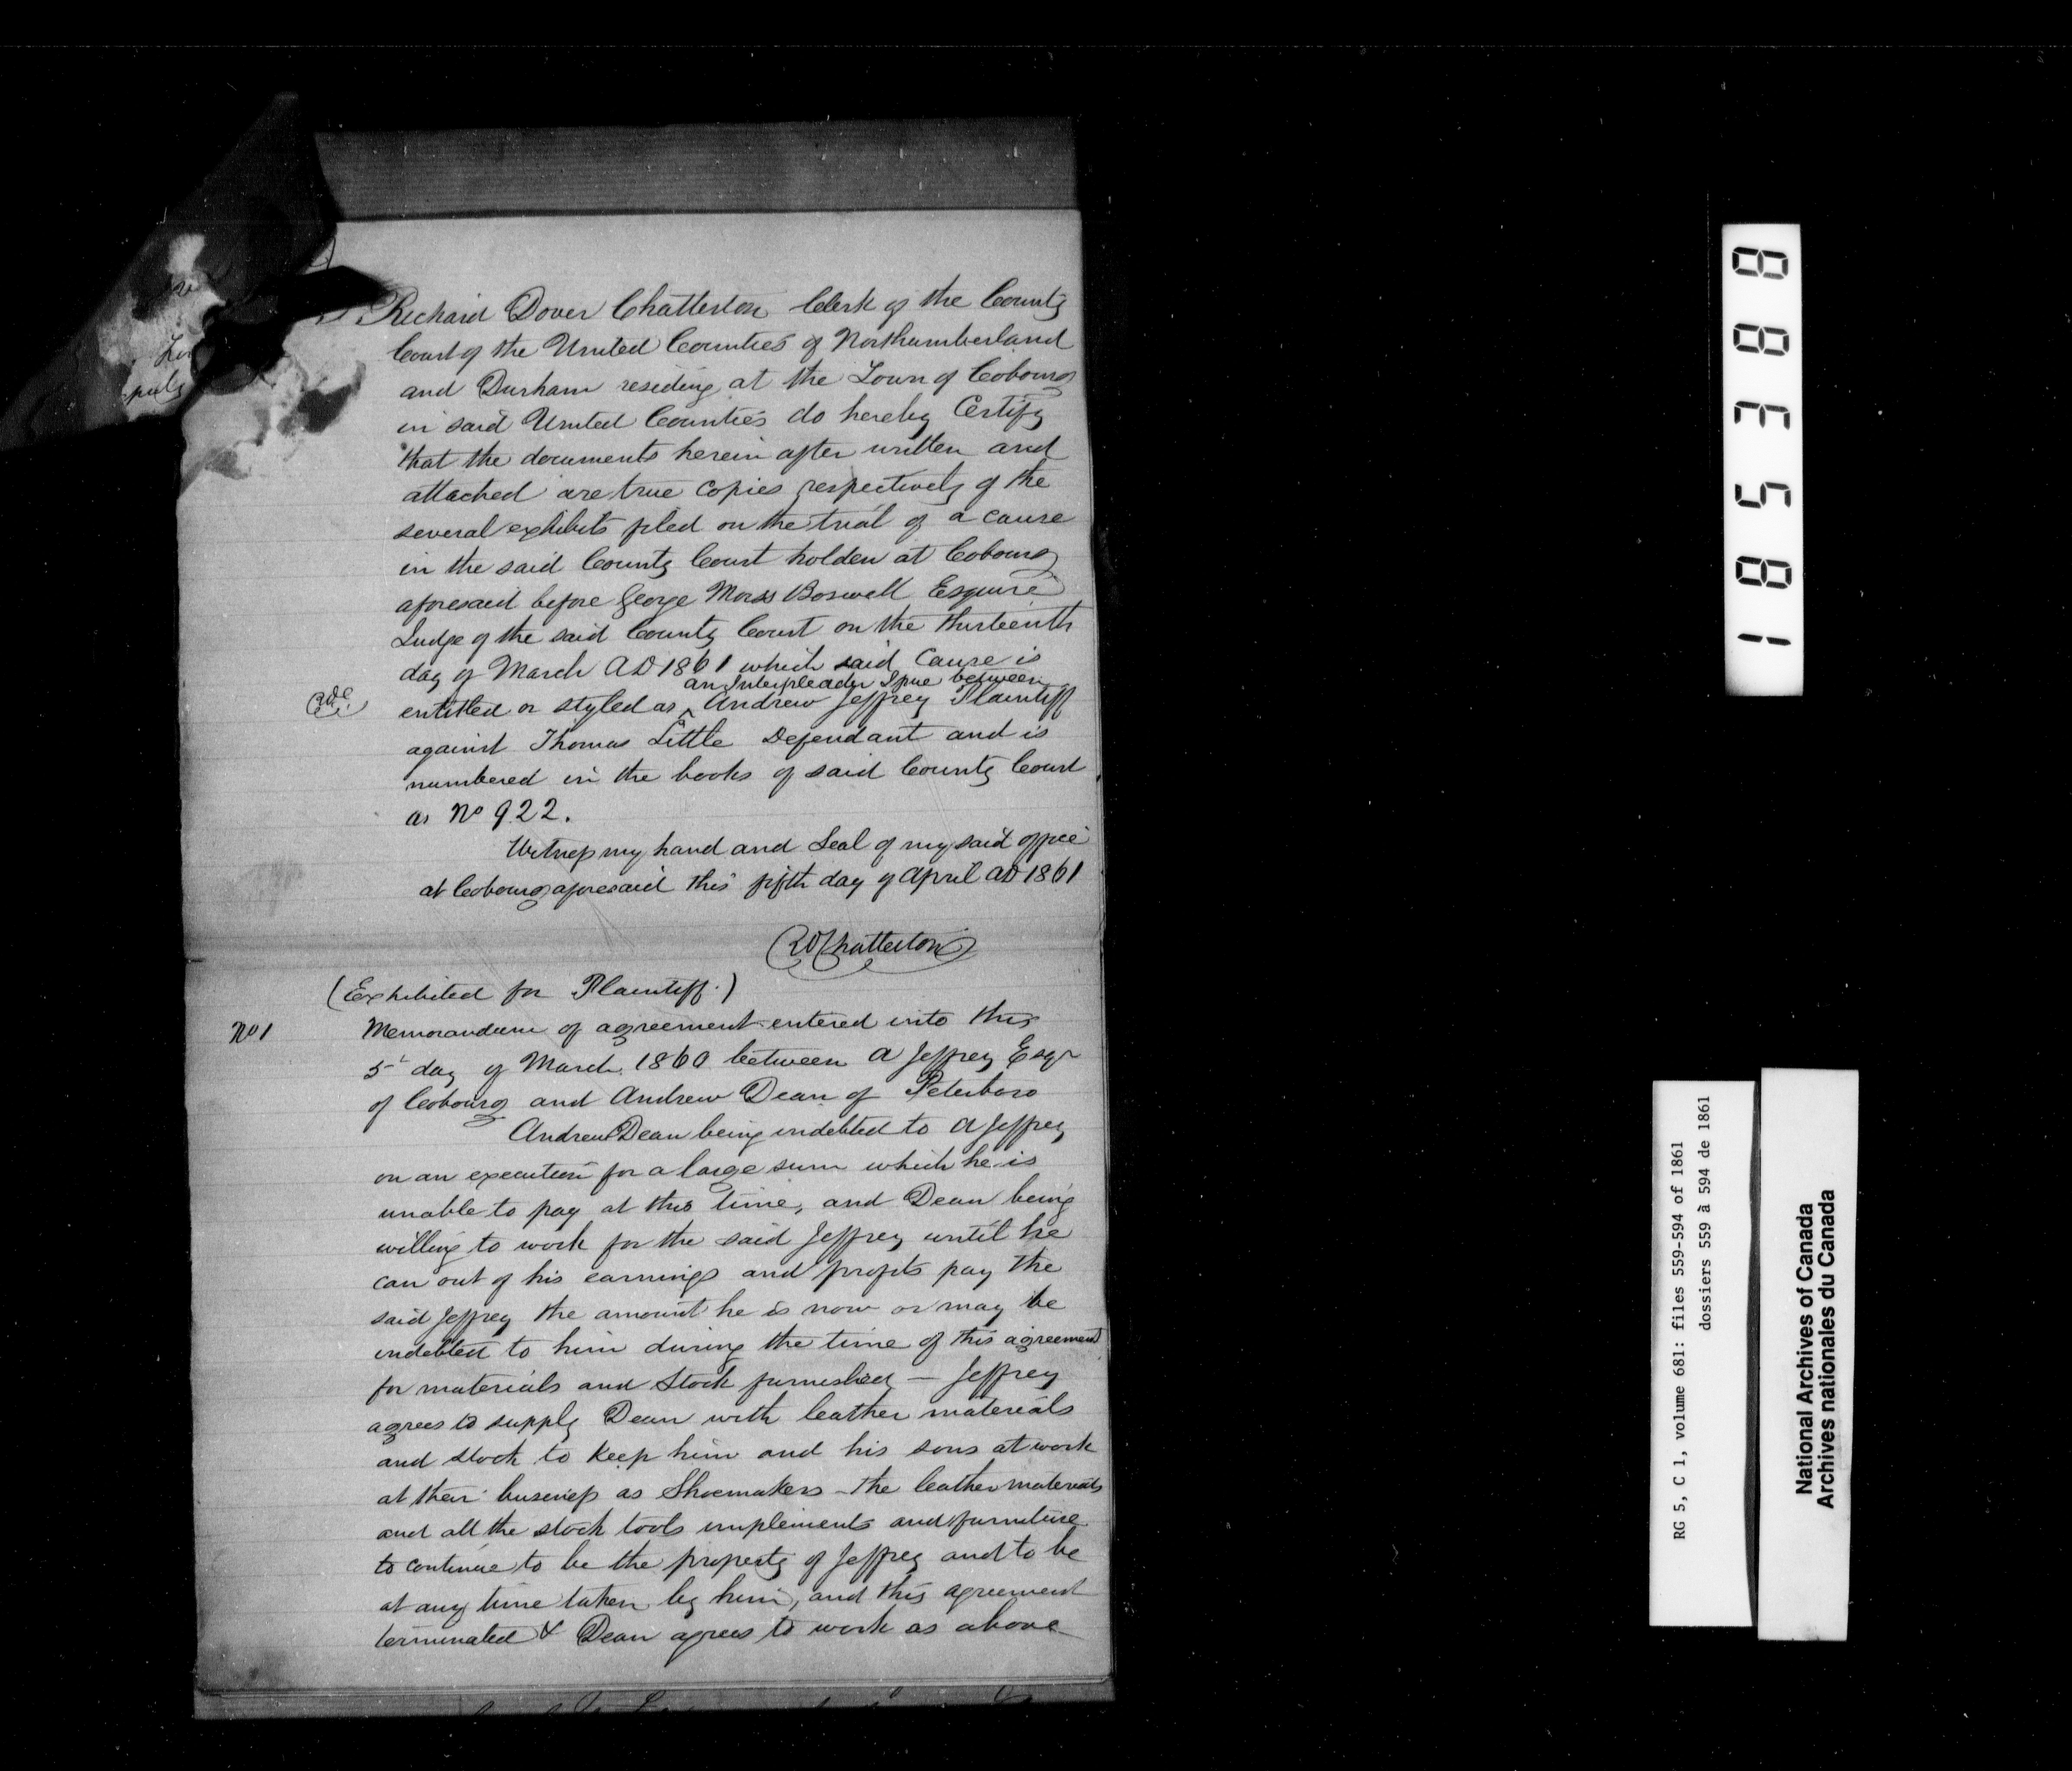 I Richard Dover Chatterton Clerk of the County
Court of the United Counties of Northumberland
and Durham residing at the Town of Cobourg
in said United Counties do hereby Certify
that the documents herein after written and
attached are true copies respectively of the
several exhibits filed on the trial of a cause
in the said County Court holden at Cobourg
aforesaid before George Morss Boswell Esquire
Judge of the said County Court on the thirteenth
day of March AD 1861 which said Cause is
an Interpleader Issue between
entitled or styled as ^ Andrew Jeffrey Plaintiff
against Thomas Little Defendant and is
numbered in the books of said County Court
as No 922.
Witness my hand and Seal of my said office
at Cobourg aforesaid this fifth day of April AD 1861
RDChatterton
(Exhibited for Plaintiff.)
No 1
Memorandum of agreement entered into this
5th day of March 1860 between A Jeffrey Esqr
of Cobourg and Andrew Dean of Peterboro
Andrew Dean being indebted to A Jeffrey
on an execution for a large sum which he is
unable to pay at this time, and Dean being
willing to work for the said Jeffrey until he
can out of his earnings and profits pay the
said Jeffrey the amount he is now or may be
indebted to him during the time of this agreement
for materials and Stock furnished — Jeffrey
agrees to supply Dean with leather materials
and stock to keep him and his sons at work
at their business as Shoemakers - the leather materials
and all the stock tools implements and furniture
to continue to be the property of Jeffrey and to be
at any time taken by him, and this agreement
terminated & Dean agrees to work as above
185388
RG 5, C 1, volume 681: files 559-594 of 1861
dossiers 559 à 594 de 1861
National Archives of Canada
Archives nationales du Canada